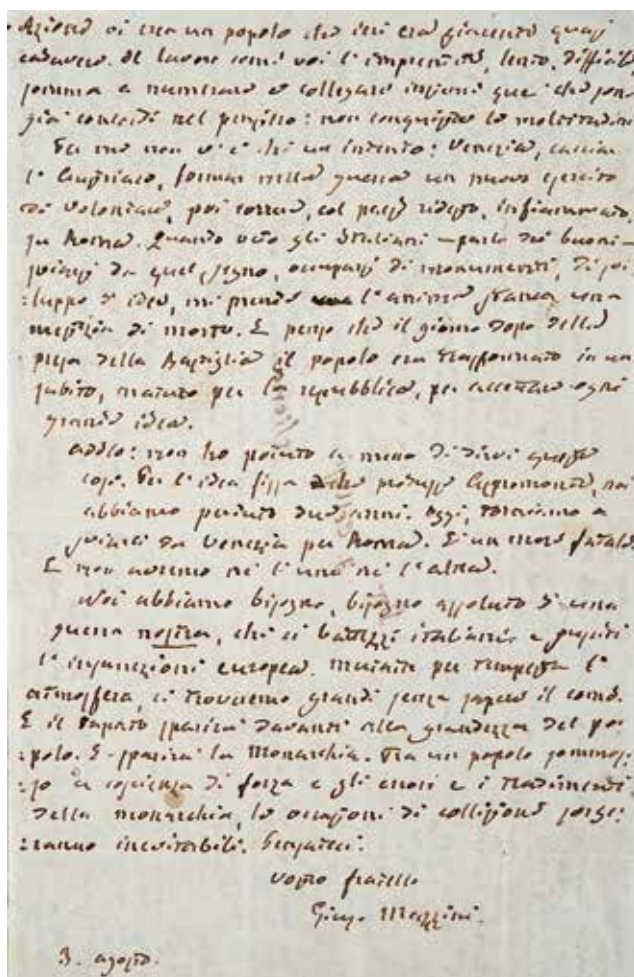 azione vi crea un popolo che ieri era giacente quasi
cadavere. Il lavoro come voi l'imprendete, lento, difficile
somma a numerare e collegare insieme quei che son
già concordi nel pensiero: non conquista le moltitudini
Per me non v'è che un intento: Venezia, cacciar
l'Austriaco, formar nella guerra un nuovo esercito
di volontari, poi correre, col paese ridesto, infiammato,
su Roma. Quando veggo gli Italiani — parlo dei buoni —
sviarsi da quel segno, occuparsi di monumenti, di svi:
:luppo d'idee, mi prende l'anima stanca una
mestizia di morte. E penso che il giorno dopo della
presa della Bastiglia il popolo era trasformato in un
subito, maturo per la repubblica, per accettare ogni
grande idea.
addio: non ho potuto a meno di dirvi queste
cose. Per l'idea fissa che produsse Aspromonte, noi
abbiamo perduto due anni. Oggi, torniamo a
sviarci da Venezia per Roma. È un errore fatale.
E non avremo nè l'una nè l'altra.
Noi abbiamo bisogno, bisogno assoluto d'una
guerra nostra, che ci battezzi italiani e susciti
l'insurrezione europea. Mutata per tempesta l'
atmosfera, ci troveremo grandi senza sapere il come.
E il Papato sparirà davanti alla grandezza del po:
:polo. E sparirà la Monarchia. Tra un popolo sommos:
:so a coscienza di forza e gli errori e i tradimenti
della monarchia, le occasioni di collisione sorge:
:ranno inevitabili. Pensateci.
vostro fratello
Gius. Mazzini.
3. agosto.